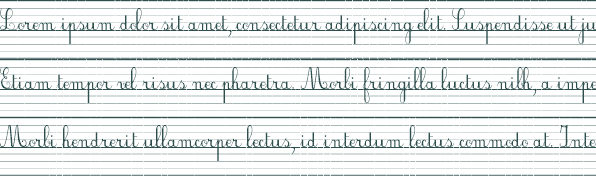 Lorem ipsum dolor sit amet, consectetur adipiscing elit. Suspendisse ut
Etiam tempor vel risus nec pharetra. Morbi fringilla luctus nibh, a
Morbi hendrerit ullamcorper lectus, id interdum lectus commodo at.